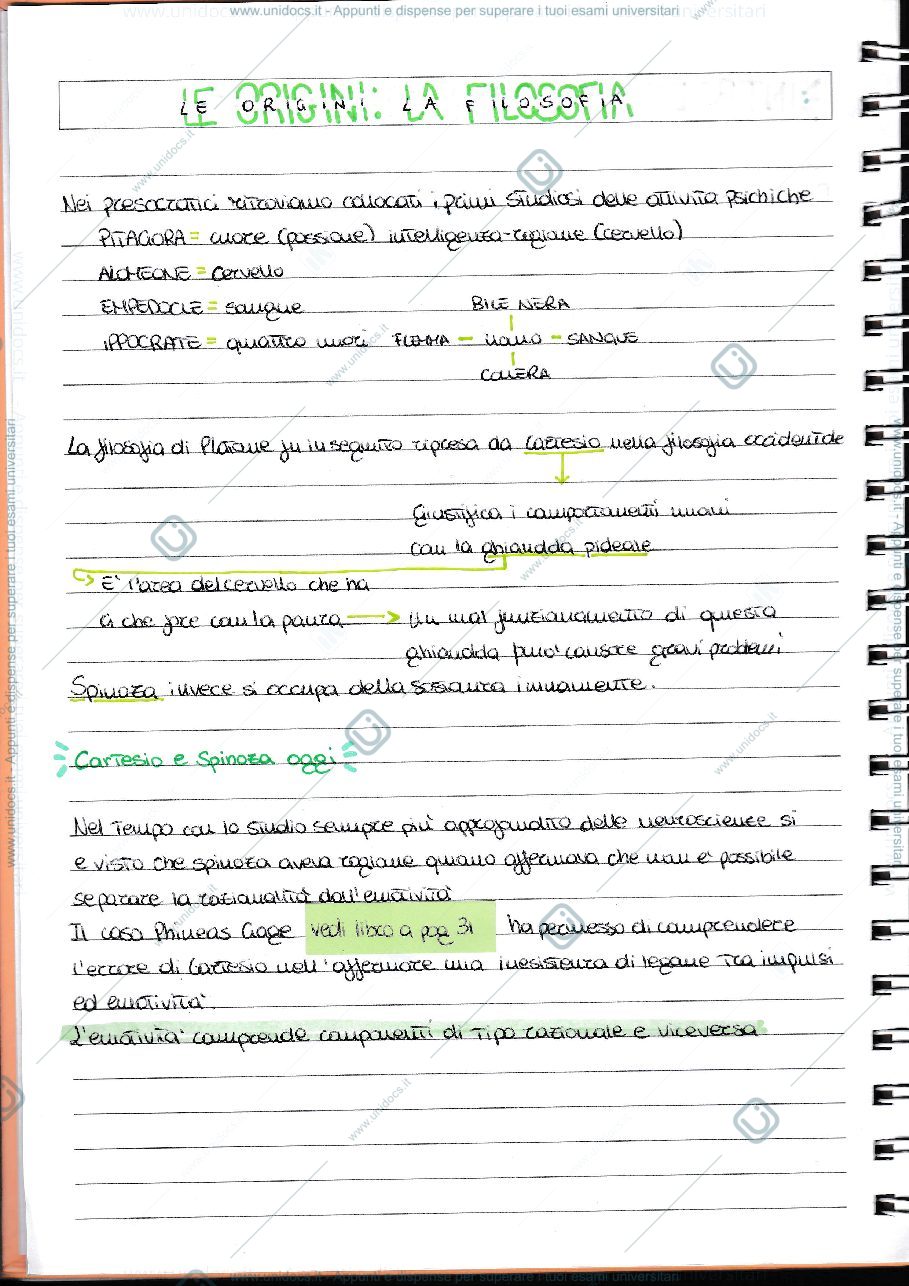 www.unidocs.it - Appunti e dispense per superare i tuoi esami universitari
LE ORIGINI: LA FILOSOFIA
Nei presocratici ritroviamo collocati i primi studiosi delle attività psichiche
PITAGORA = cuore (passione) intelligenza-ragione (cervello)
ALCMEONE = cervello
EMPEDOCLE = sangue
BILE NERA
IPPOCRATE = quattro umori FLEMMA - uomo - SANGUE
COLLERA
La filosofia di Platone fu in seguito ripresa da Cartesio nella filosofia occidentale
Giustifica i comportamenti umani
con la ghiandola pideale
E' l'area del cervello che ha
a che fare con la paura → Un mal funzionamento di questa
ghiandola puo' causare gravi problemi
Spinoza invece si occupa della sostanza
Cartesio e Spinoza oggi
Nel tempo con lo studio sempre più approfondito delle neuroscienze si
e visto che spinoza aveva ragione quano affermava che non e' possibile
separare la razionalità dall'emotività
Il caso Phineas Gage vedi libro a pag 31 ha permesso di comprendere
l'errore di Cartesio nell'affermare una inesistenza di legame tra impulsi
ed emotività.
L'emotività comprende componenti di tipo razionale e viceversa